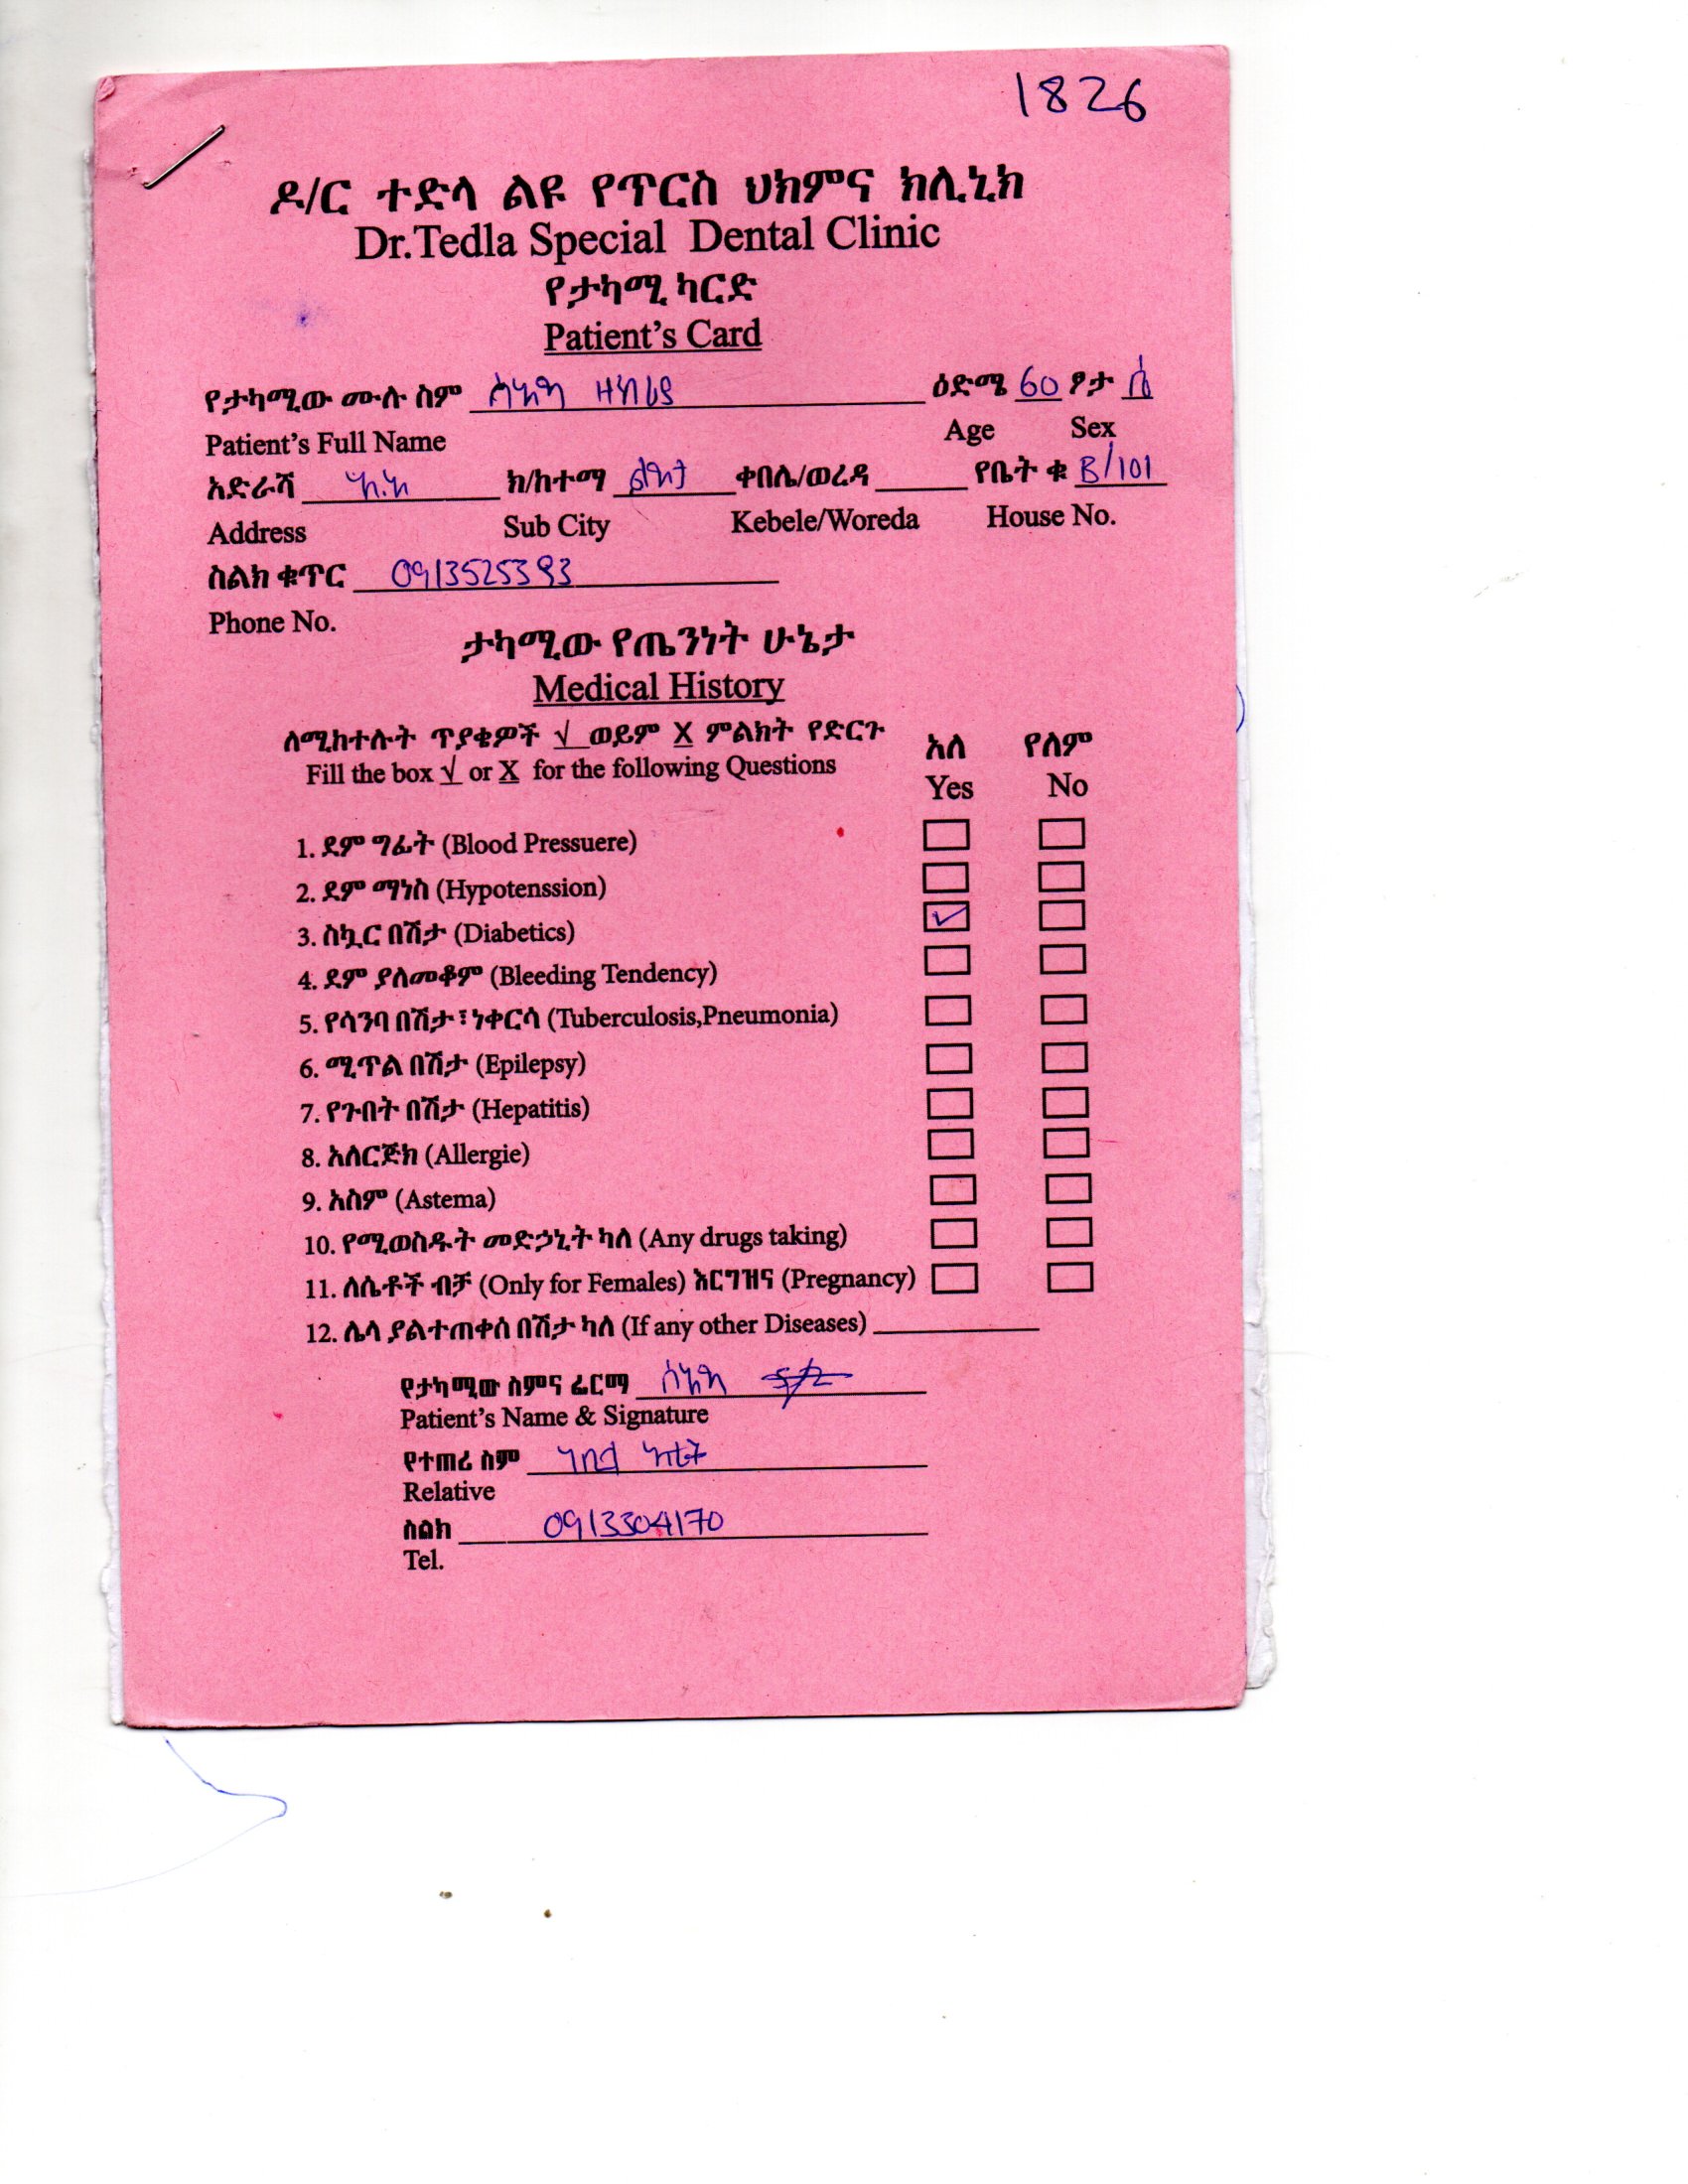 1826
ዶ/ር ተድላ ልዩ የጥርስ ህክምና ክሊኒክ
Dr.Tedla Special Dental Clinic
የታካሚ ካርድ
Patient's Card
የታካሚው ሙሉ ስም ዕድሜ 60 ፆታ ሴ
Patient's Full Name Age Sex
አድራሻ አ.አ ክ/ከተማ ልደታ ቀበሌ/ወረዳ የቤት ቁ B/101
Address Sub City Kebele/Woreda House No.
ስልክ ቁጥር 0913525393
Phone No.
ታካሚው የጤንነት ሁኔታ
Medical History
ለሚከተሉት ጥያቄዎች √ ወይም X ምልክት የድርጉ አለ የለም
Fill the box √ or X for the following Questions Yes No
1. ደም ግፊት (Blood Pressuere)
2. ደም ማነስ (Hypotenssion)
3. ስኳር በሽታ (Diabetics) ✓
4. ደም ያለመቆም (Bleeding Tendency)
5. የሳንባ በሽታ፣ ነቀርሳ (Tuberculosis,Pneumonia)
6. ሚጥል በሽታ (Epilepsy)
7. የጉበት በሽታ (Hepatitis)
8. አለርጅክ (Allergie)
9. አስም (Astema)
10. የሚወስዱት መድኃኒት ካለ (Any drugs taking)
11. ለሴቶች ብቻ (Only for Females) እርግዝና (Pregnancy)
12. ሌላ ያልተጠቀሰ በሽታ ካለ (If any other Diseases)
የታካሚው ስምና ፊርማ
Patient's Name & Signature
የተጠሪ ስም
Relative
ስልክ 0913304170
Tel.